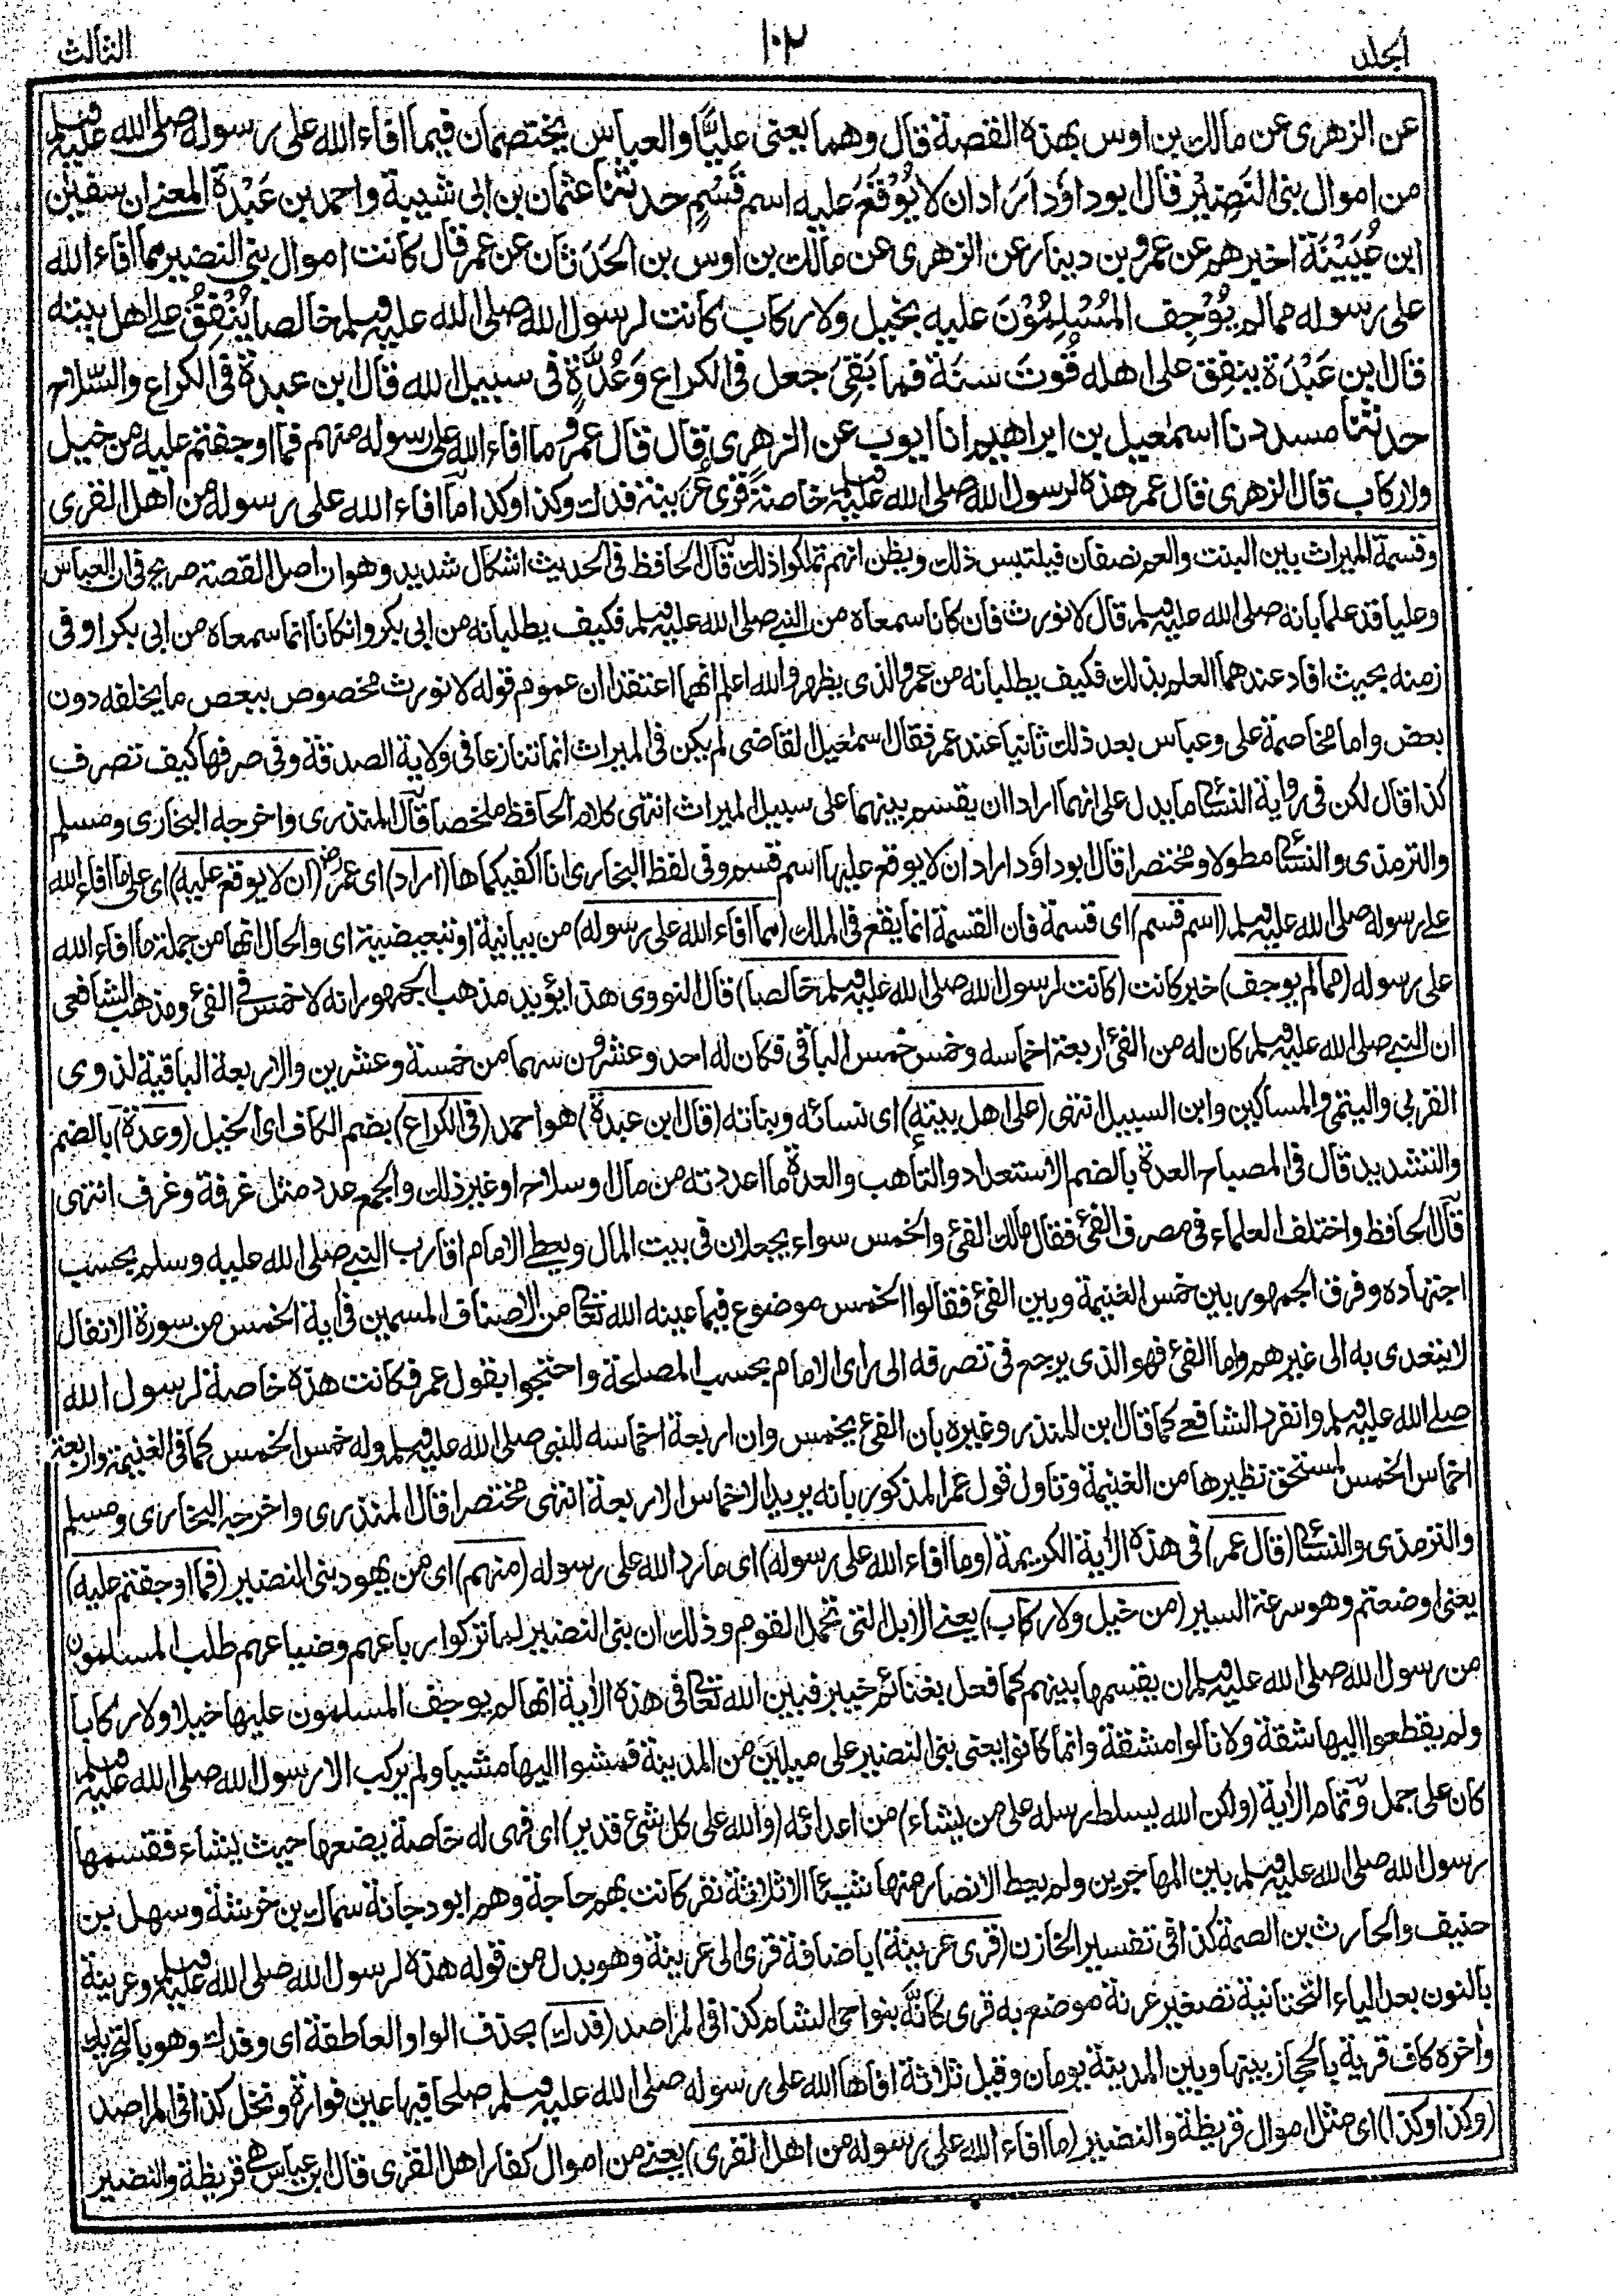 المجلد ١٠٢ الثالث
عن الزهرى عن مالك بن اوس بهذه القصة قال وهما يعنى عليًّا والعباس يختصمان فيما افاء الله على رسوله صلى الله عليه وسلم
من اموال بنى النَضِيْر قال ابو داؤد اَرَاد ان لا يُوْقَعَ عليه اسم قَسْمٍ حدثنا عثمان بن ابى شيبة واحمد بن عَبْدَة المعنے ان سفين
ابن عُيَيْنَة اخبرهم عن عمرو بن دينار عن الزهرى عن مالك بن اوس بن الحَدَثان عن عمر قال كانت اموال بنى النضير مما افاء الله
على رسوله مما لم يُوْجِف المُسْلِمُوْنَ عليه بخيل ولا ركاب كانت لرسول الله صلى الله عليه وسلم خالصا يُنْفِقُ على اهل بيته
قال ابن عَبْدَة ينفق على اهله قُوتَ سَنَة فما بَقِىَ جعل فى الكراع وَعُدَّةٍ فى سبيل الله قال ابن عبدة فى الكراع والسّلاح
حدثنا مسدد نا اسمٰعيل بن ابراهيم انا ايوب عن الزهرى قال قال عمر وما افاء الله على رسوله منهم فما اوجفتم عليه من خيل
ولا ركاب قال الزهرى قال عمر هذه لرسول الله صلى الله عليه وسلم خاصةً قُرى عُرَيْنَة فدك وكذا وكذا ما افاء الله على رسوله من اهل القرى
وقسمة الميراث بين البنت والعم نصفان فيلتبس ذلك ويظن انهم تملكوا ذلك قال الحافظ فى الحديث اشكال شديد وهو ان اصل القصة صريح فى ان العباس
وعليا قد علما بانه صلى الله عليه وسلم قال لا نورث فان كانا سمعاه من النبے صلى الله عليه وسلم فكيف يطلبانه من ابى بكر وان كانا انما سمعاه من ابى بكر او فى
زمنه بحيث افاد عندهما العلم بذلك فكيف يطلبانه من عمر والذى يظهر والله اعلم انهما اعتقدا ان عموم قوله لا نورث مخصوص ببعض ما يخلفه دون
بعض واما مخاصمة على وعباس بعد ذلك ثانيا عند عمر فقال اسمٰعيل القاضى لم يكن فى الميراث انما تنازعا فى ولاية الصدقة وفى صرفها كيف تصرف
كذا قال لكن فى رواية النسائى ما يدل على انهما ارادا ان يقسم بينهما على سبيل الميراث انتهى كلام الحافظ ملخصا قال المنذرى واخرجه البخارى ومسلم
والترمذى والنسائى مطولا ومختصرا قال ابو داؤد اراد ان لا يوقع عليها اسم قسم وفى لفظ البخارى انا اكفيكماها (اراد) اى عمر رض (ان لا يوقع عليه) اى على ما افاء الله
على رسوله صلى الله عليه وسلم (اسم قسم) اى قسمة فان القسمة انما يقع فى الملك (مما افاء الله على رسوله) من بيانية او تبعيضية اى والحال انها من جملة ما افاء الله
على رسوله (مما لم يوجف) خبر كانت (كانت لرسول الله صلى الله عليه وسلم خالصا) قال النووى هذا يؤيد مذهب الجمهور انه لا خمس فى الفئ ومذهب الشافعى
ان النبے صلى الله عليه وسلم كان له من الفئ اربعة اخماسه وخمس خمس الباقى فكان له احد وعشرون سهما من خمسة وعشرين والاربعة الباقية لذوى
القربى واليتمى والمساكين وابن السبيل انتهى (على اهل بيته) اى نسائه وبناته (قال ابن عبدة) هو احمد (فى الكراع) بضم الكاف اى الخيل (وعدة) بالضم
والتشديد قال فى المصباح العدة بالضم الاستعداد والتأهب والعدة ما اعددته من مال او سلاح او غير ذلك والجمع عدد مثل غرفة وغرف انتهى
قال الحافظ واختلف العلماء فى مصرف الفئ فقال مالك الفئ والخمس سواء يجعلان فى بيت المال ويعطى الامام اقارب النبے صلى الله عليه وسلم بحسب
اجتهاده وفرق الجمهور بين خمس الغنيمة وبين الفئ فقالوا الخمس موضوع فيما عينه الله تعالى من الاصناف المسمين فى اية الخمس من سورة الانفال
لا يتعدى به الى غيرهم واما الفئ فهو الذى يرجع فى تصرفه الى راى الامام بحسب المصلحة واحتجوا بقول عمر فكانت هذه خاصة لرسول الله
صلے الله عليه وسلم وانفرد الشافعے كما قال ابن المنذر وغيره بان الفئ يخمس وان اربعة اخماسه للنبى صلى الله عليه وسلم وله خمس الخمس كما فى الغنيمة واربعة
اخماس الخمس لمستحق نظيرها من الغنيمة وتاول قول عمر المذكور بانه يريد الاخماس الاربعة انتهى مختصرا قال المنذرى واخرجه البخارى ومسلم
والترمذى والنسائى (قال عمر) فى هذه الأية الكريمة (وما افاء الله على رسوله) اى ما رد الله على رسوله (منهم) اى من يهود بنى النضير (فما اوجفتم عليه)
يعنى اوضعتم وهو سرعة السير (من خيل ولا ركاب) يعنے الابل التى تحمل القوم وذلك ان بنى النضير لما تركوا رباعهم وضياعهم طلب المسلمون
من رسول الله صلى الله عليه وسلم ان يقسمها بينهم كما فعل بغنائم خيبر فبين الله تعالى فى هذه الأية انها لم يوجف المسلمون عليها خيلا ولا ركابا
ولم يقطعوا اليها شقة ولا نالوا مشقة وانما كانوا يعنى بنى النضير على ميلين من المدينة فمشوا اليها مشيا ولم يركب الا رسول الله صلى الله عليه وسلم
كان على جمل وتمام الأية (ولكن الله يسلط رسله على من يشاء) من اعدائه (والله على كل شئ قدير) اى فهى له خاصة يضعها حيث يشاء فقسمها
رسول الله صلى الله عليه وسلم بين المهاجرين ولم يعط الانصار منها شيئا الا ثلاثة نفر كانت بهم حاجة وهم ابو دجانة سماك بن خرشة وسهل بن
حنيف والحارث بن الصمة كذا فى تفسير الخازن (قرى عرينة) باضافة قرى الى عرينة وهو بدل من قوله هذه لرسول الله صلى الله عليه وسلم وعرينة
بالنون بعد الياء التحتانية تصغير عرنة موضع به قرى كانَّه بنواحى الشام كذا فى المراصد (فدك) بحذف الواو العاطفة اى وفدك وهو بالتحريك
واٰخره كاف قرية بالحجاز بينها وبين المدينة يومان وقيل ثلاثة افاءها الله على رسوله صلى الله عليه وسلم صلحا فيها عين فوارة ونخل كذا فى المراصد
(وكذا وكذا) اى مثل اموال قريظة والنضير (ما افاء الله على رسوله من اهل القرى) يعنے من اموال كفار اهل القرى قال ابن عباس هى قريظة والنضير